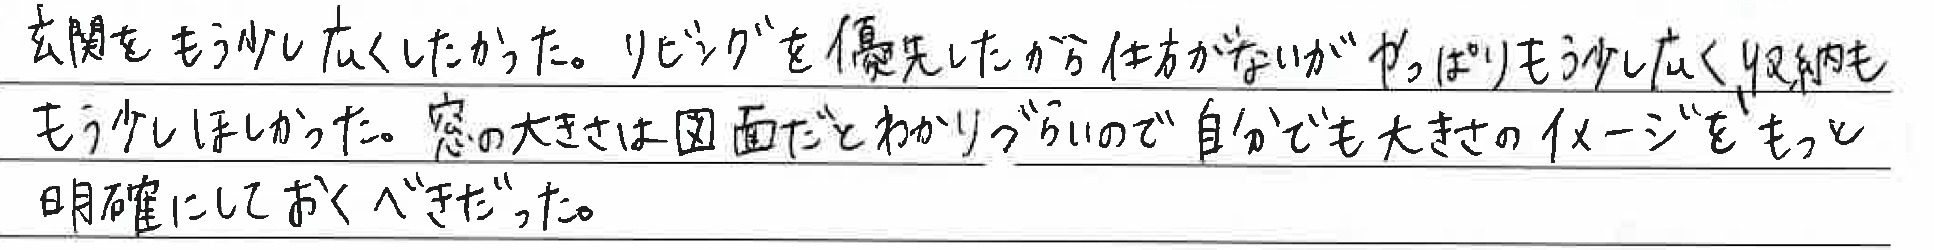 玄関をもう少し広くしたかった。リビングを優先したから仕方がないがやっぱりもう少し広く、収納も
もう少しほしかった。窓の大きさは図面だとわかりづらいので自分でも大きさのイメージをもっと
明確にしておくべきだった。